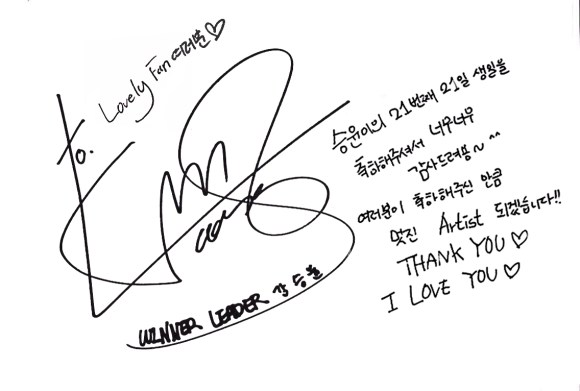 To. Lovely Fan 여러분♡
WINNER LEADER 강승윤
승윤이의 21번째 21일 생일을
축하해주셔서 너무너무
감사드려용~^^
여러분이 축하해주신 만큼
멋진 Artist 되겠습니다!!
THANK YOU♡
I LOVE YOU♡